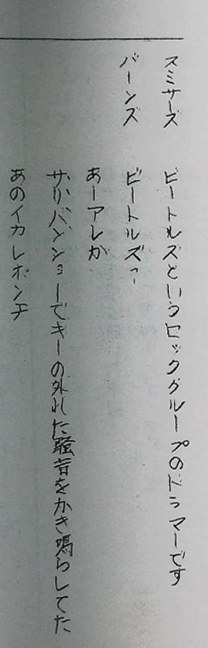 スミサーズ ビートルズというロックグループのドラマーです
バーンズ ビートルズ?
あーアレか
サリバンショーでキーの外れた騒音をかき鳴らしてた
あのイカレポンチ